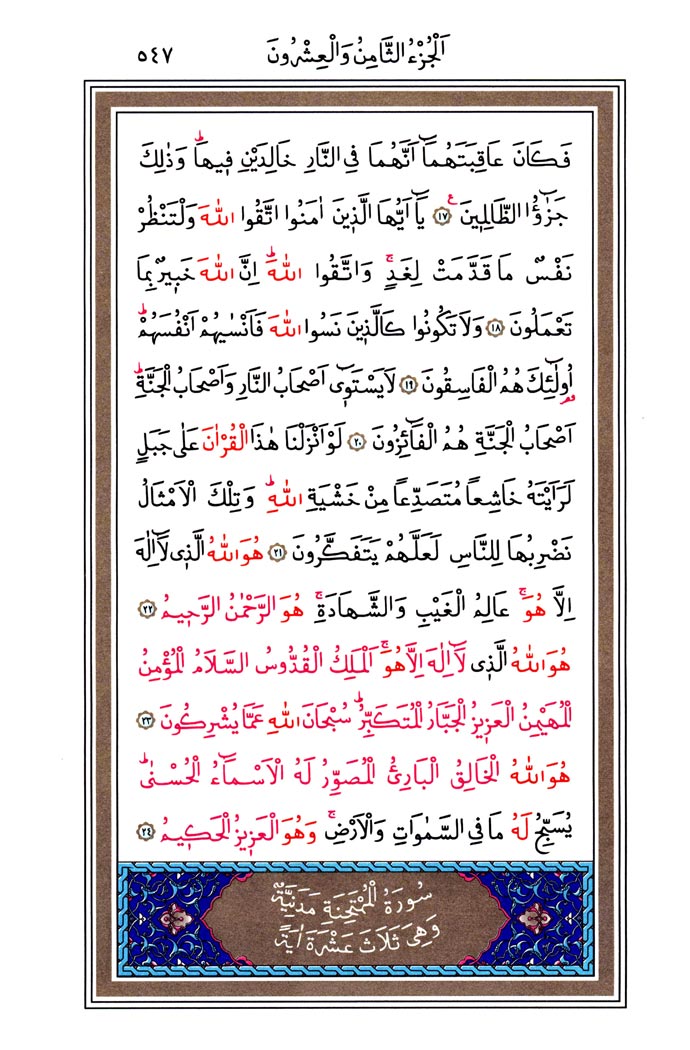 اَلْجُزْءُ الثَّامِنُ وَالْعِشْرُونَ ٥٤٧
فَكَانَ عَاقِبَتَهُمَٓا اَنَّهُمَا فِي النَّارِ خَالِدَيْنِ فٖيهَاۜ وَذٰلِكَ
جَزٰٓؤُا الظَّالِمٖينَ ﴿١٧﴾ يَٓا اَيُّهَا الَّذٖينَ اٰمَنُوا اتَّقُوا اللّٰهَ وَلْتَنْظُرْ
نَفْسٌ مَا قَدَّمَتْ لِغَدٍۚ وَاتَّقُوا اللّٰهَۜ اِنَّ اللّٰهَ خَبٖيرٌ بِمَا
تَعْمَلُونَ ﴿١٨﴾ وَلَا تَكُونُوا كَالَّذٖينَ نَسُوا اللّٰهَ فَاَنْسٰيهُمْ اَنْفُسَهُمْۜ
اُو۬لٰٓئِكَ هُمُ الْفَاسِقُونَ ﴿١٩﴾ لَا يَسْتَوٖٓي اَصْحَابُ النَّارِ وَاَصْحَابُ الْجَنَّةِۜ
اَصْحَابُ الْجَنَّةِ هُمُ الْفَٓائِزُونَ ﴿٢٠﴾ لَوْ اَنْزَلْنَا هٰذَا الْقُرْاٰنَ عَلٰى جَبَلٍ
لَرَاَيْتَهُ خَاشِعاً مُتَصَدِّعاً مِنْ خَشْيَةِ اللّٰهِۜ وَتِلْكَ الْاَمْثَالُ
نَضْرِبُهَا لِلنَّاسِ لَعَلَّهُمْ يَتَفَكَّرُونَ ﴿٢١﴾ هُوَ اللّٰهُ الَّذٖي لَٓا اِلٰهَ
اِلَّا هُوَۚ عَالِمُ الْغَيْبِ وَالشَّهَادَةِۚ هُوَ الرَّحْمٰنُ الرَّحٖيمُ ﴿٢٢﴾
هُوَ اللّٰهُ الَّذٖي لَٓا اِلٰهَ اِلَّا هُوَۚ اَلْمَلِكُ الْقُدُّوسُ السَّلَامُ الْمُؤْمِنُ
الْمُهَيْمِنُ الْعَزٖيزُ الْجَبَّارُ الْمُتَكَبِّرُۜ سُبْحَانَ اللّٰهِ عَمَّا يُشْرِكُونَ ﴿٢٣﴾
هُوَ اللّٰهُ الْخَالِقُ الْبَارِئُ الْمُصَوِّرُ لَهُ الْاَسْمَٓاءُ الْحُسْنٰىۜ
يُسَبِّحُ لَهُ مَا فِي السَّمٰوَاتِ وَالْاَرْضِۚ وَهُوَ الْعَزٖيزُ الْحَكٖيمُ ﴿٢٤﴾
سُورَةُ الْمُمْتَحِنَةِ مَدَنِيَّةٌ
وَهِيَ ثَلَاثَ عَشْرَةَ اٰيَةً